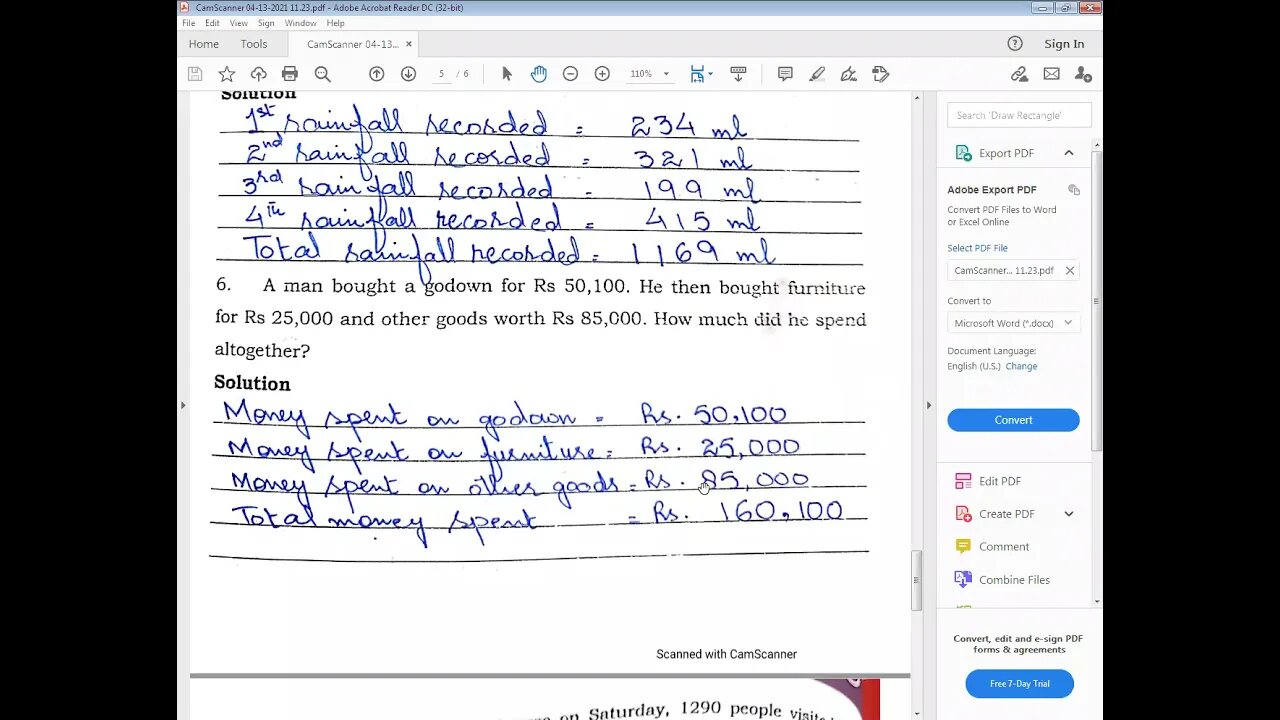 CamScanner 04-13-2021 11.23.pdf - Adobe Acrobat Reader DC (32-bit)
File Edit View Sign Window Help
Home Tools CamScanner 04-13... × Sign In
5 / 6 110%
Search 'Draw Rectangle'
Export PDF
Adobe Export PDF
Convert PDF Files to Word
or Excel Online
Select PDF File
CamScanner... 11.23.pdf
Convert to
Microsoft Word (*.docx)
Document Language:
English (U.S.) Change
Convert
Edit PDF
Create PDF
Comment
Combine Files
Convert, edit and e-sign PDF
forms & agreements
Free 7-Day Trial
Solution
1st rainfall recorded = 234 ml
2nd rainfall recorded = 321 ml
3rd rainfall recorded = 199 ml
4th rainfall recorded = 415 ml
Total rainfall recorded = 1169 ml
6. A man bought a godown for Rs 50,100. He then bought furniture
for Rs 25,000 and other goods worth Rs 85,000. How much did he spend
altogether?
Solution
Money spent on godown = Rs. 50,100
Money spent on furniture = Rs. 25,000
Money spent on other goods = Rs. 85,000
Total money spent = Rs. 160,100
Scanned with CamScanner
on Saturday, 1290 people